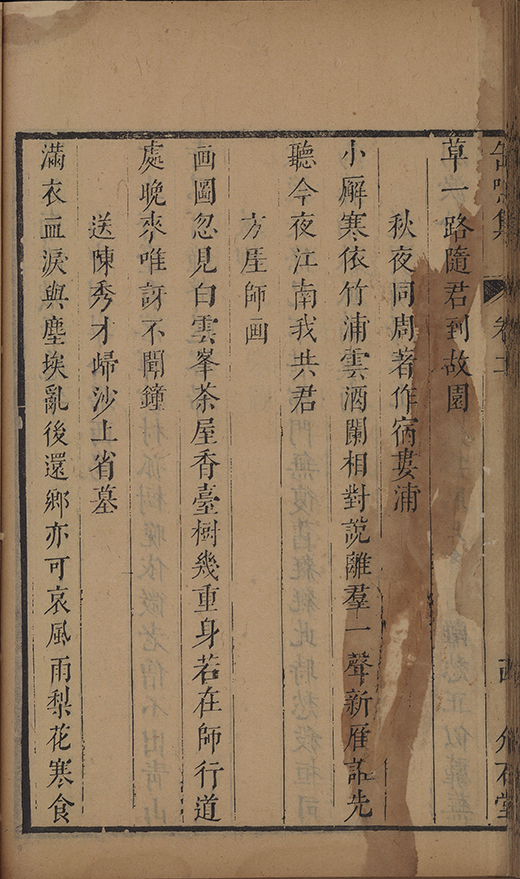 缶鳴集 卷二 介石堂
草一路隨君到故園
秋夜同周著作宿婁浦
小廨寒依竹浦雲酒闌相對說離羣一聲新雁誰先
聽今夜江南我共君
方厓師画
画圖忽見白雲峯茶屋香臺樹幾重身若在師行道
處晚來唯訝不聞鐘
送陳秀才歸沙上省墓
滿衣血淚與塵埃亂後還鄉亦可哀風雨梨花寒食